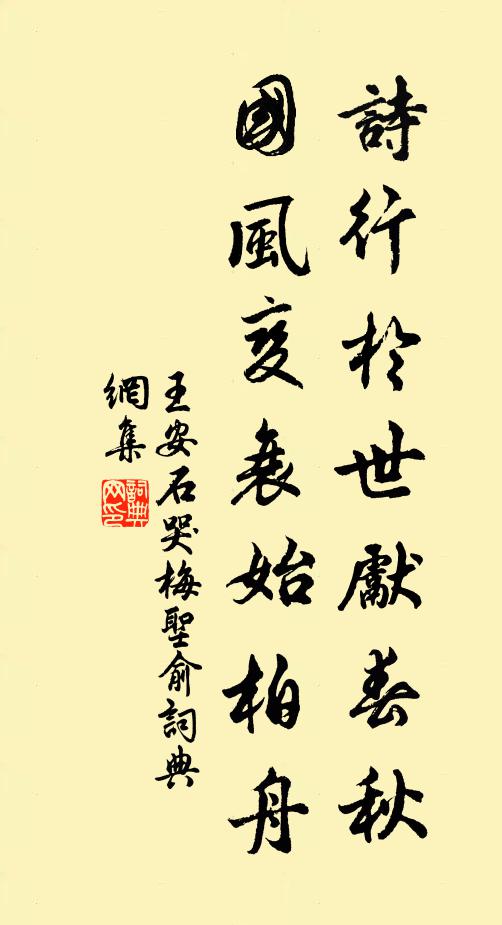 詩行於世獻春秋
國風變衰始柏舟
王安石哭梅聖俞詞典
網集
詞典
网印